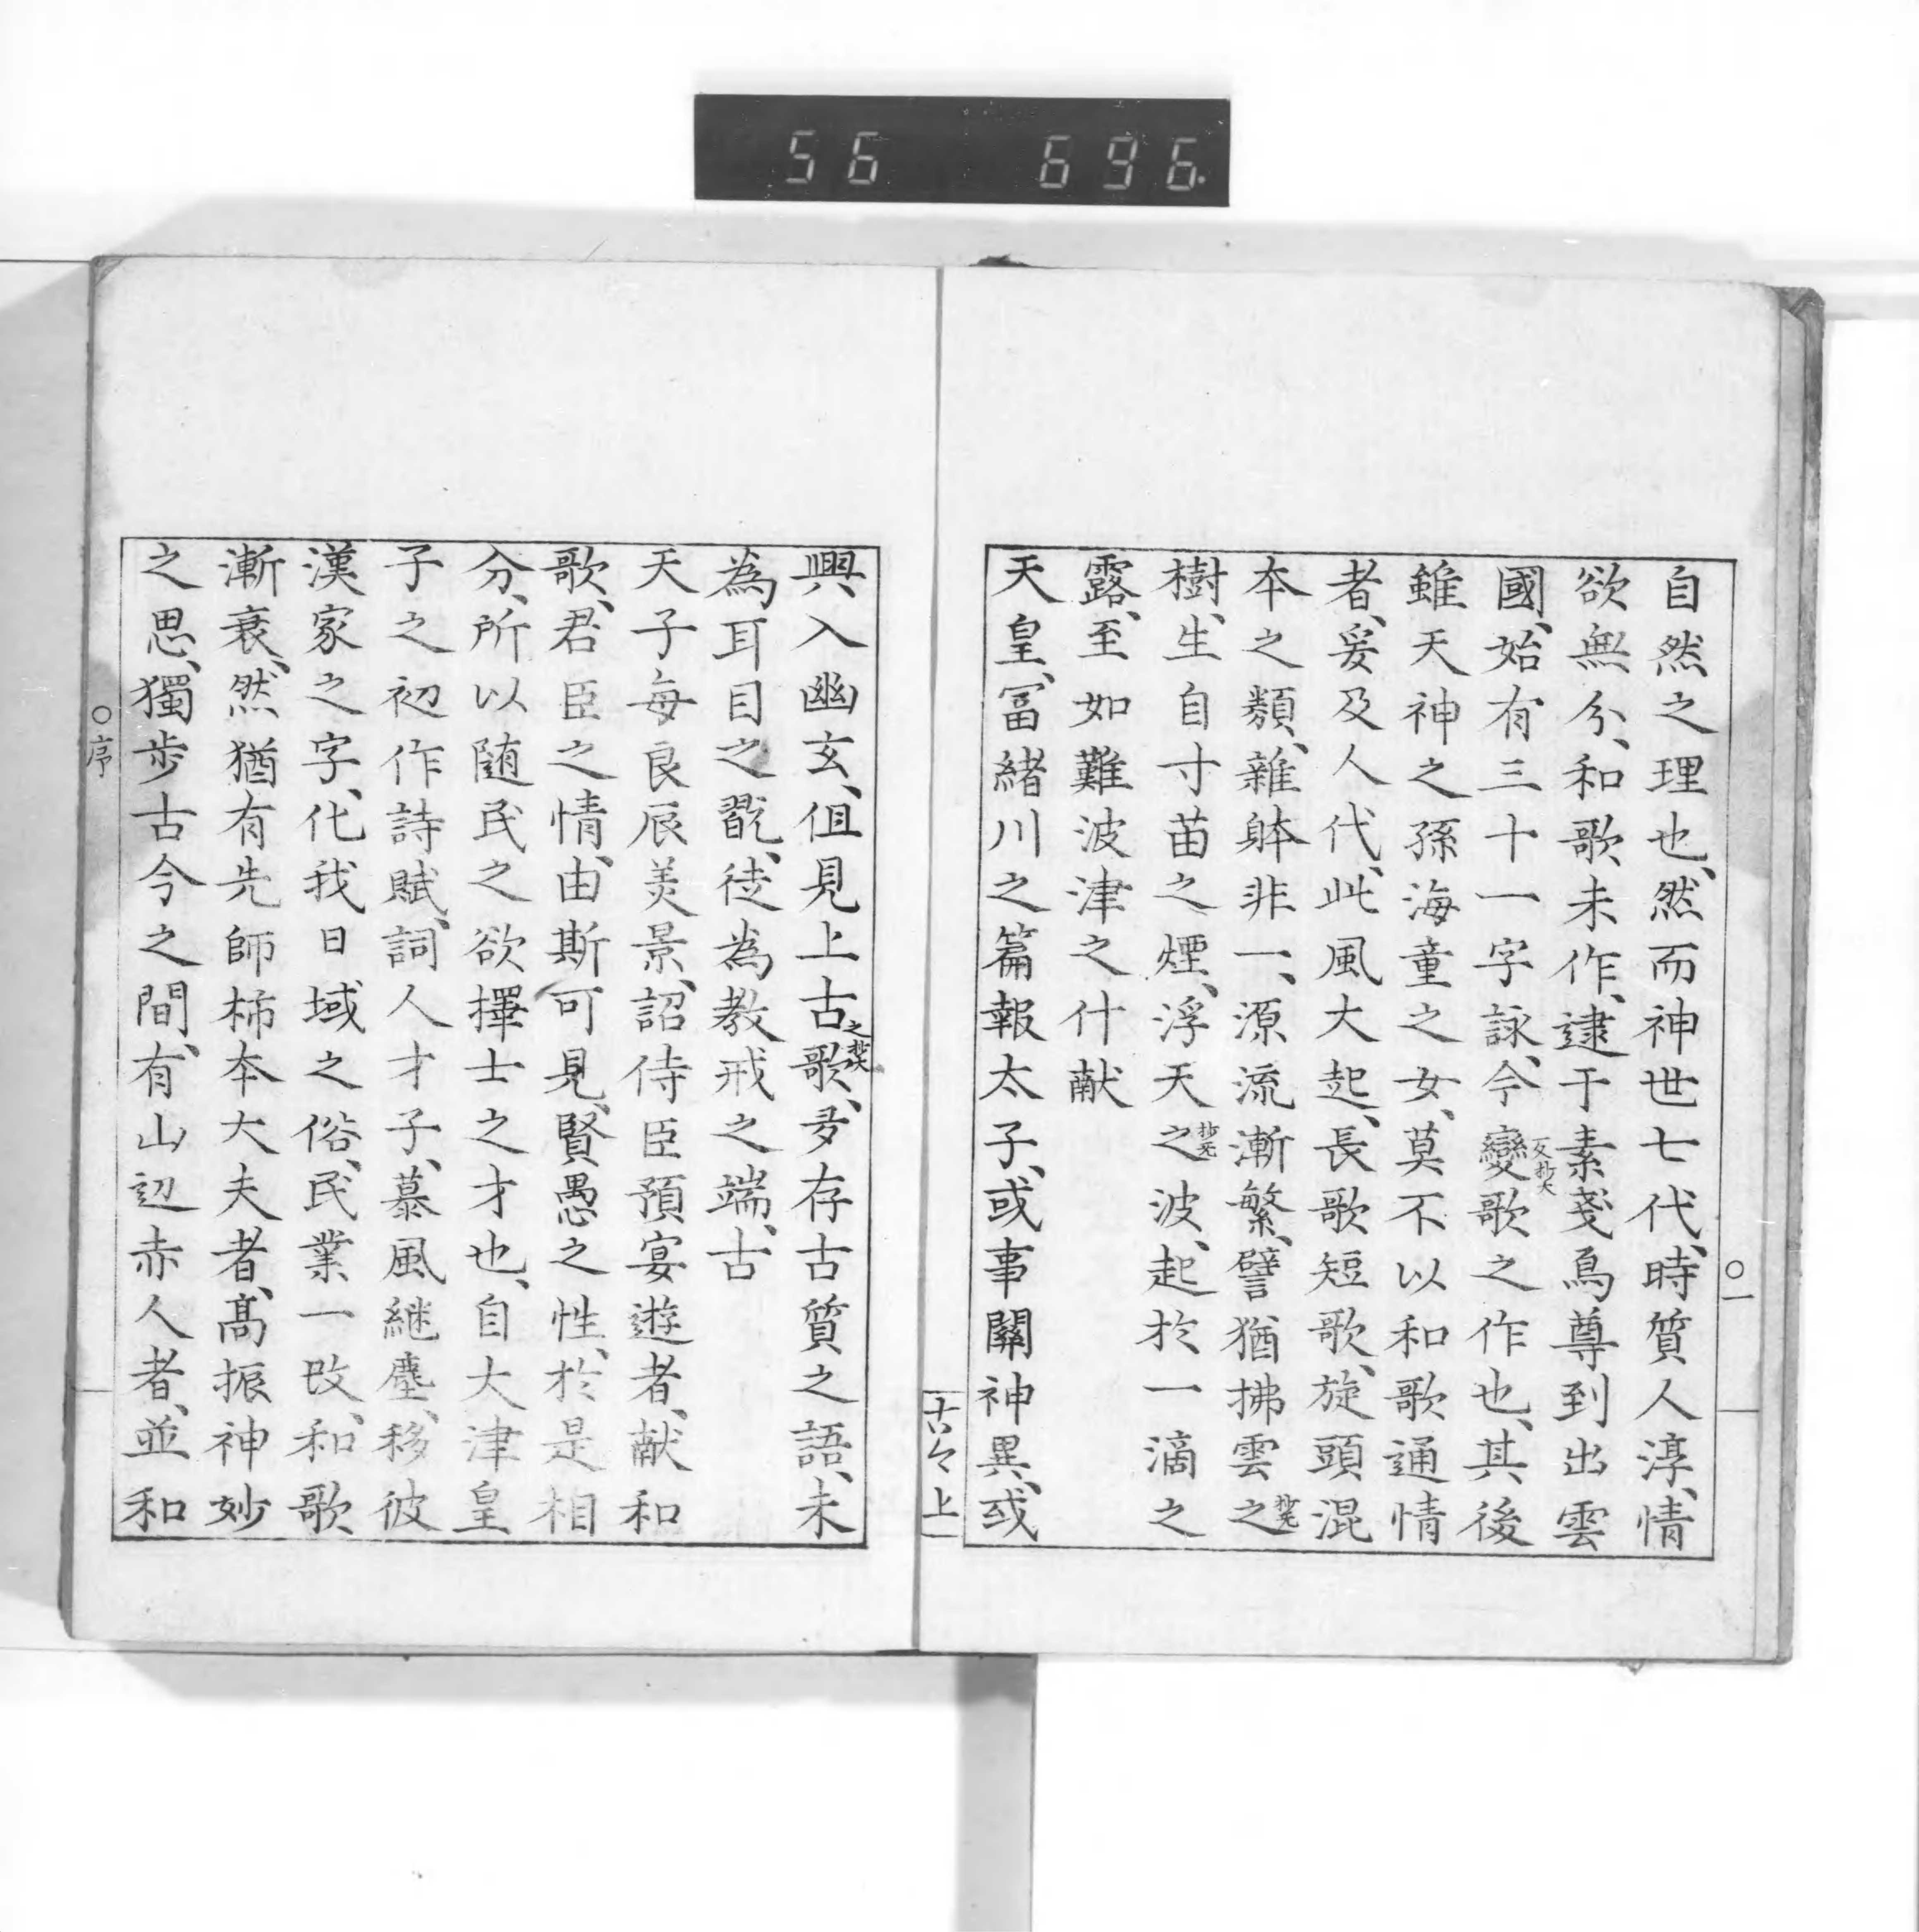 56 696.
○一
自然之理也、然而神世七代、時質人淳、情
欲無分、和歌未作、逮于素戔烏尊到出雲
國、始有三十一字詠、今變歌之作也、其後
雖天神之孫海童之女、莫不以和歌通情
者、爰及人代、此風大起、長歌短歌、旋頭混
本之類、雜躰非一、源流漸繁、譬猶拂雲之
樹、生自寸苗之煙、浮天之波、起於一滴之
露、至如難波津之什献
天皇、冨緒川之篇報太子、或事關神異、或
古今上
興入幽玄、但見上古歌、多存古質之語、未
為耳目之翫、徒為教戒之端、古
天子每良辰美景、詔侍臣預宴遊者、献和
歌、君臣之情、由斯可見、賢愚之性、於是相
分、所以随民之欲擇士之才也、自大津皇
子之初作詩賦、詞人才子、慕風継塵、移彼
漢家之字、化我日域之俗、民業一改、和歌
漸衰、然猶有先師柿本大夫者、髙振神妙
之思、獨步古今之間、有山辺赤人者、並和
○序